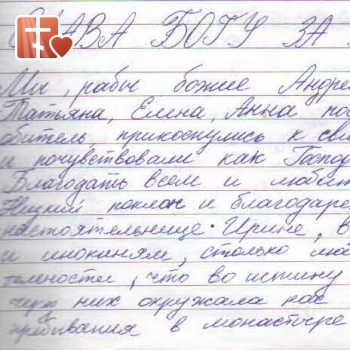 СЛАВА БОГУ ЗА
Мы, рабы божие Андре
Татьяна, Елена, Анна по
обитель, прикоснулись к свя
и почувствовали как Господ
Благодать всем и любит
Низкий поклон и благодаре
настоятельнице Ирине, в
и инокиням, столько лю
тельности, что во истину
них окружала нас
пребывания в монастыре